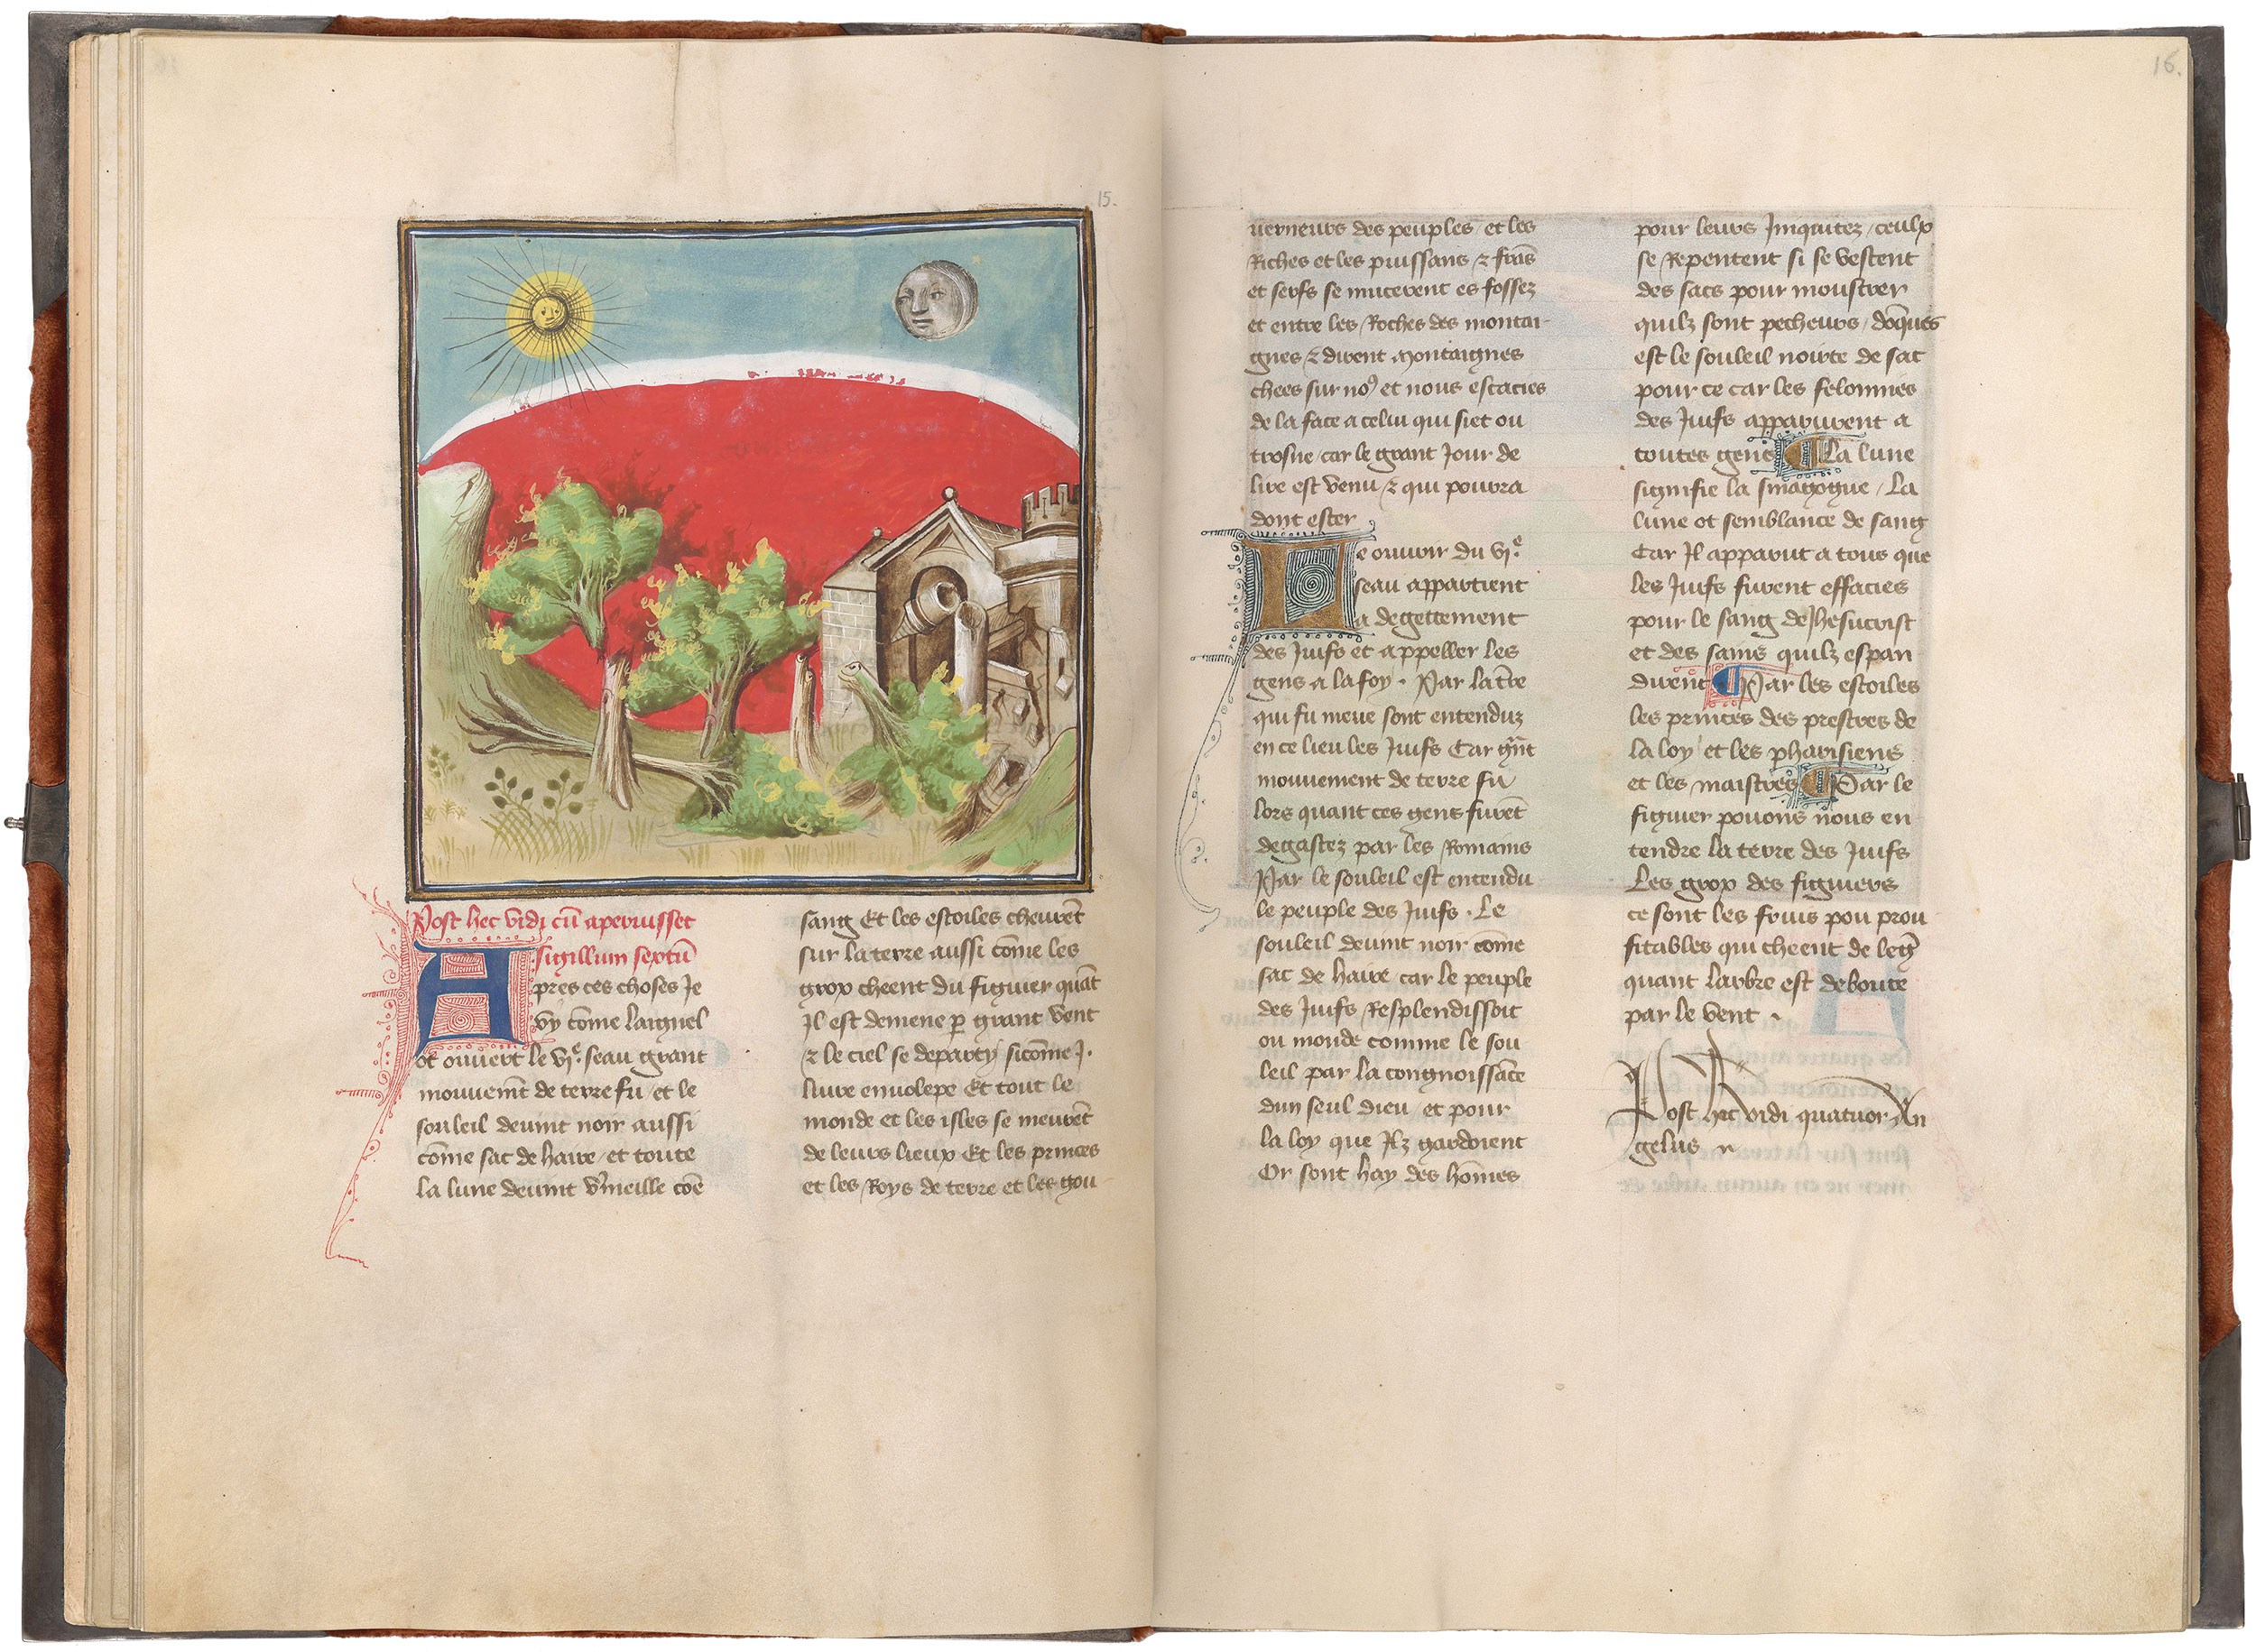 15.
Post hec vidi cū aperuisset
sigillum sextū
Apres ces choses Je
vy cōme laignel
ot ouuert le vj.e seau grant
mouuemt̄ de terre fu / et le
souleil deuint noir aussi
cōme sac de haire / et toute
la lune deuint v̄meille cōe
sang Et les estoiles cheurēt
sur la terre aussi cōme les
grox cheent du figuier quāt
Jl est demene p grant vent
⁊ le ciel se departy sicōme j.
liure enuolepe Et tout le
monde et les isles se meurēt
de leurs lieux Et les princes
et les Roys de terre et les gou
16.
uerneurs des peuples / et les
Riches et les puissans ⁊ frās
et serfs se mucerent es fossez
et entre les Roches des montai-
gnes ⁊ dirent Montaignes
chees sur no9 et nous escacies
de la face a celui qui siet ou
trosne / car le grant Jour de
lire est venu ⁊ qui pourra
dont ester
Le ouurir du vj.e
seau appartient
a degettement
des Juifs et appeller les
gens a la foy . Par la t̄re
qui fu meue sont entenduz
en ce lieu les Juifs Car gn̄t
mouuement de terre fu
lors quant ces gens furēt
degastez par les Romains
Par le souleil est entendu
le peuple des Juifs . Le
souleil deuint noir cōme
sac de haire / car le peuple
des Juifs Resplendissoit
ou monde comme le sou
leil par la congnoissāce
dun seul dieu / et pour
la loy que Jlz gardoient
Or sont hay des hōmes
pour leurs Jniquitez / ceulx
se Repentent si se vestent
des sacs pour moustrer
quilz sont pecheurs / dōques
est le souleil noir ce de sac
pour ce car les felonnies
des Juifs apparurent a
toutes gens ¶ La lune
signifie la sinagogue / La
lune ot semblance de sang
Car Jl apparut a tous que
les Juifs furent effacies
pour le sang de Jhesucrist
et des sains quilz espan
dirent ¶ Par les estoiles
les princes des prestres de
la loy / et les pharisiens
et les maistres ¶ Par le
figuier pouons nous en
tendre la terre des Juifs
Les grox des figuiers
ce sont les fruis pou prou
fitables qui cheent de leḡ
quant larbre est deboute
par le vent .
Post hec vidi quatuor An
gelus